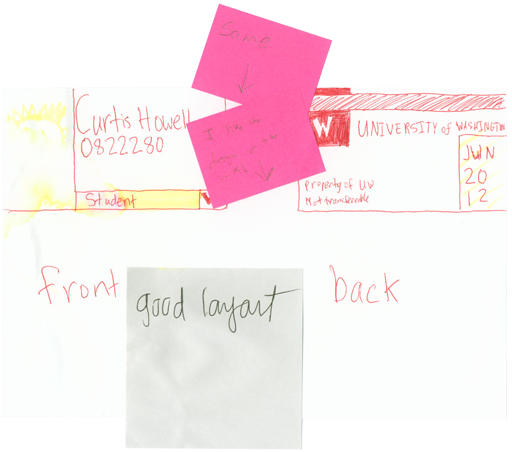 Same
Curtis Howell
0822280
I like the
Student
W UNIVERSITY of WASHINGTON
JUN
20
12
Property of UW
Not transferable
front
back
good layout